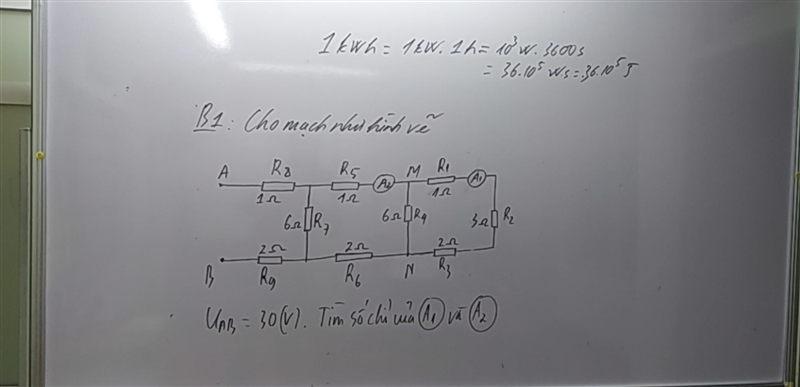 1 kWh = 1kW. 1h = 10³ W. 3600s
= 36.10⁵ Ws = 36.10⁵ J
B1: Cho mạch như hình vẽ
A R8 R5 M R1
1Ω 1Ω A2 1Ω A1
6Ω R7 6Ω R4 3Ω R2
2Ω 2Ω 2Ω
B R9 R6 N R3
UAB = 30(V). Tìm số chỉ của A1 và A2